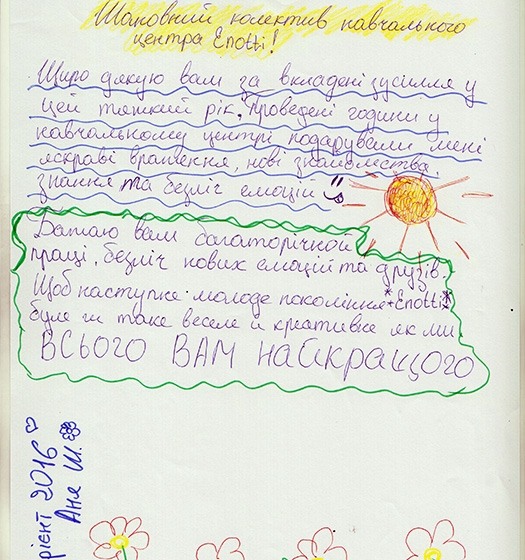 Шановний колектив навчального
центра Enotti!
Щиро дякую вам за вкладені зусилля у
цей тяжкий рік. Проведені години у
навчальному центрі подарували мені
яскраві враження, нові знайомства,
знання та безліч емоцій
Бажаю вам багаторічной
праці, безліч нових емоцій та друзів.
Щоб наступне молоде покоління *Enotti*
було ги таке веселе и креативне як ми
ВСЬОГО ВАМ НАЙКРАЩОГО
рієнт 2016
Аня Ш.